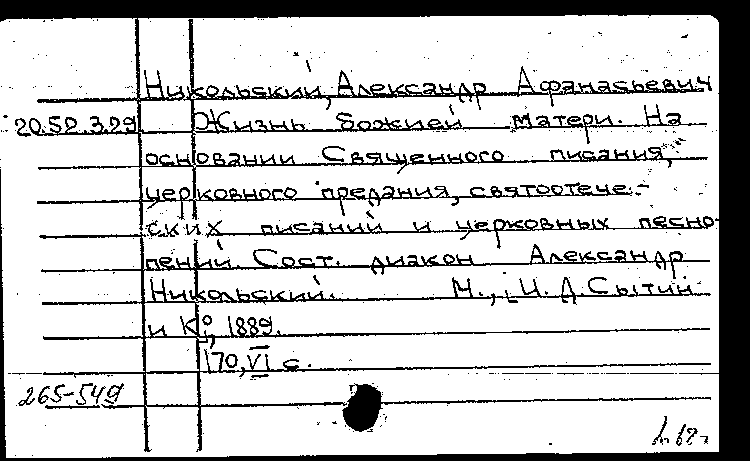 Никольский, Александр Афанасьевич
20.52.3.29 Жизнь божией матери. На
основании Священного писания,
церковного предания, святоотече-
ских писаний и церковных песно-
пений. Сост. диакон Александр
Никольский. М., И. Д. Сытин
и Кº, 1889.
170, VI с.
265-549